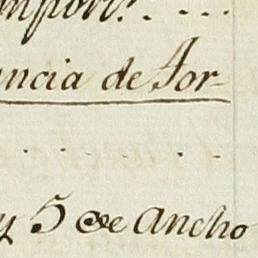 import.ⁿ. ...
ncia de For-
y 5 de ancho